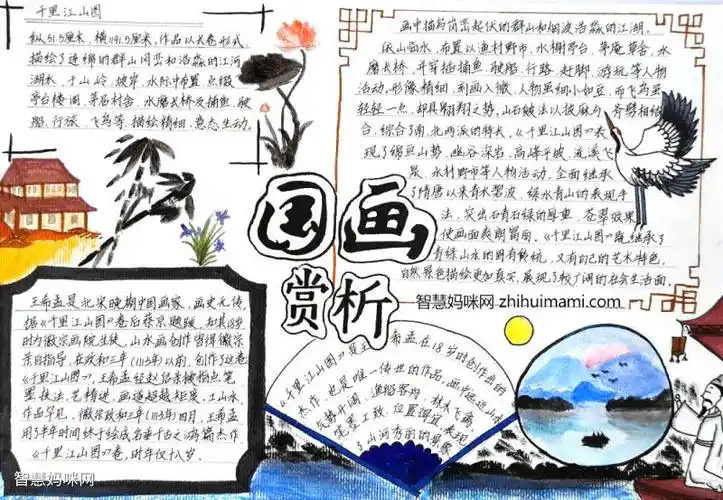 千里江山图
纵51.5厘米，横1191.5厘米，作品以长卷形式，
描绘了连绵的群山冈峦和浩淼的江河
湖水，于山岭、坡岸、水际中布置、点缀
亭台楼阁、茅居村舍，水磨长桥及捕鱼、驶
船、行旅、飞鸟等，描绘精细，意态生动。
画中描写岗峦起伏的群山和烟波浩淼的江湖。
依山临水，布置以渔村野市，水榭亭台，茅庵草舍，水
磨长桥，并穿插捕鱼、驶船、行路、赶脚、游玩等人物
活动，形像精细，刻画入微，人物虽细小如豆，而飞鸟虽
轻轻一点，却具翱翔之势。山石皴法以披麻与斧劈相结
合，综合了南、北两派的特长。《千里江山图》表
现了绵亘山势，幽谷深岩，高峰平坡，流溪飞
泉，水村野市等人物活动，全面继承
了隋唐以来青水碧波，绿水青山的表现手
法，突出石青石绿的厚重、苍翠效果，
使画面爽朗富丽。《千里江山图》既继承了
青绿山水的固有传统，又有自己的艺术特色，
自然景色描绘更加真实，展现了较广阔的社会生活面。
国画
赏析
智慧妈咪网 zhihuimami.com
王希孟是北宋晚期中国画家，画史无传，
据《千里江山图》卷后蔡京题跋，知其18岁
时为徽宗画院生徒，山水画创作曾得徽宗
亲自指导，在政和三年（1113年）以前，创作了这卷
《千里江山图》。王希孟经赵佶亲授指点笔
墨技法，艺精进，画遂超越矩度，工山水，
作品罕见。徽宗政和三年（1113年）四月，王希孟
用了半年时间终于绘成名垂千古之鸿篇杰作
《千里江山图》卷，时年仅十八岁。
《千里江山图》是王希孟在18岁时创作出的
杰作，也是唯一传世的作品，画史远近山水
气势开阔，渔船客舟，林木飞禽，
笔墨工致，位置得宜，表现
了山河秀丽的景象
智慧妈咪网